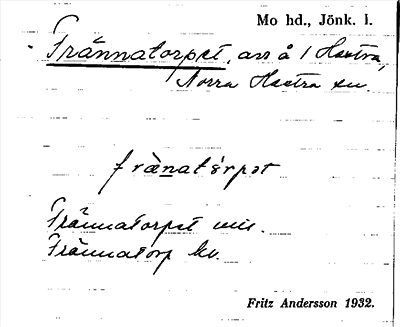 Mo hd., Jönk. l.
Trännatorpet, avs å 1 Hestra,
Norra Hestra sn.
fränatårpət
Trännatorpet
Trännatorp
Fritz Andersson 1932.